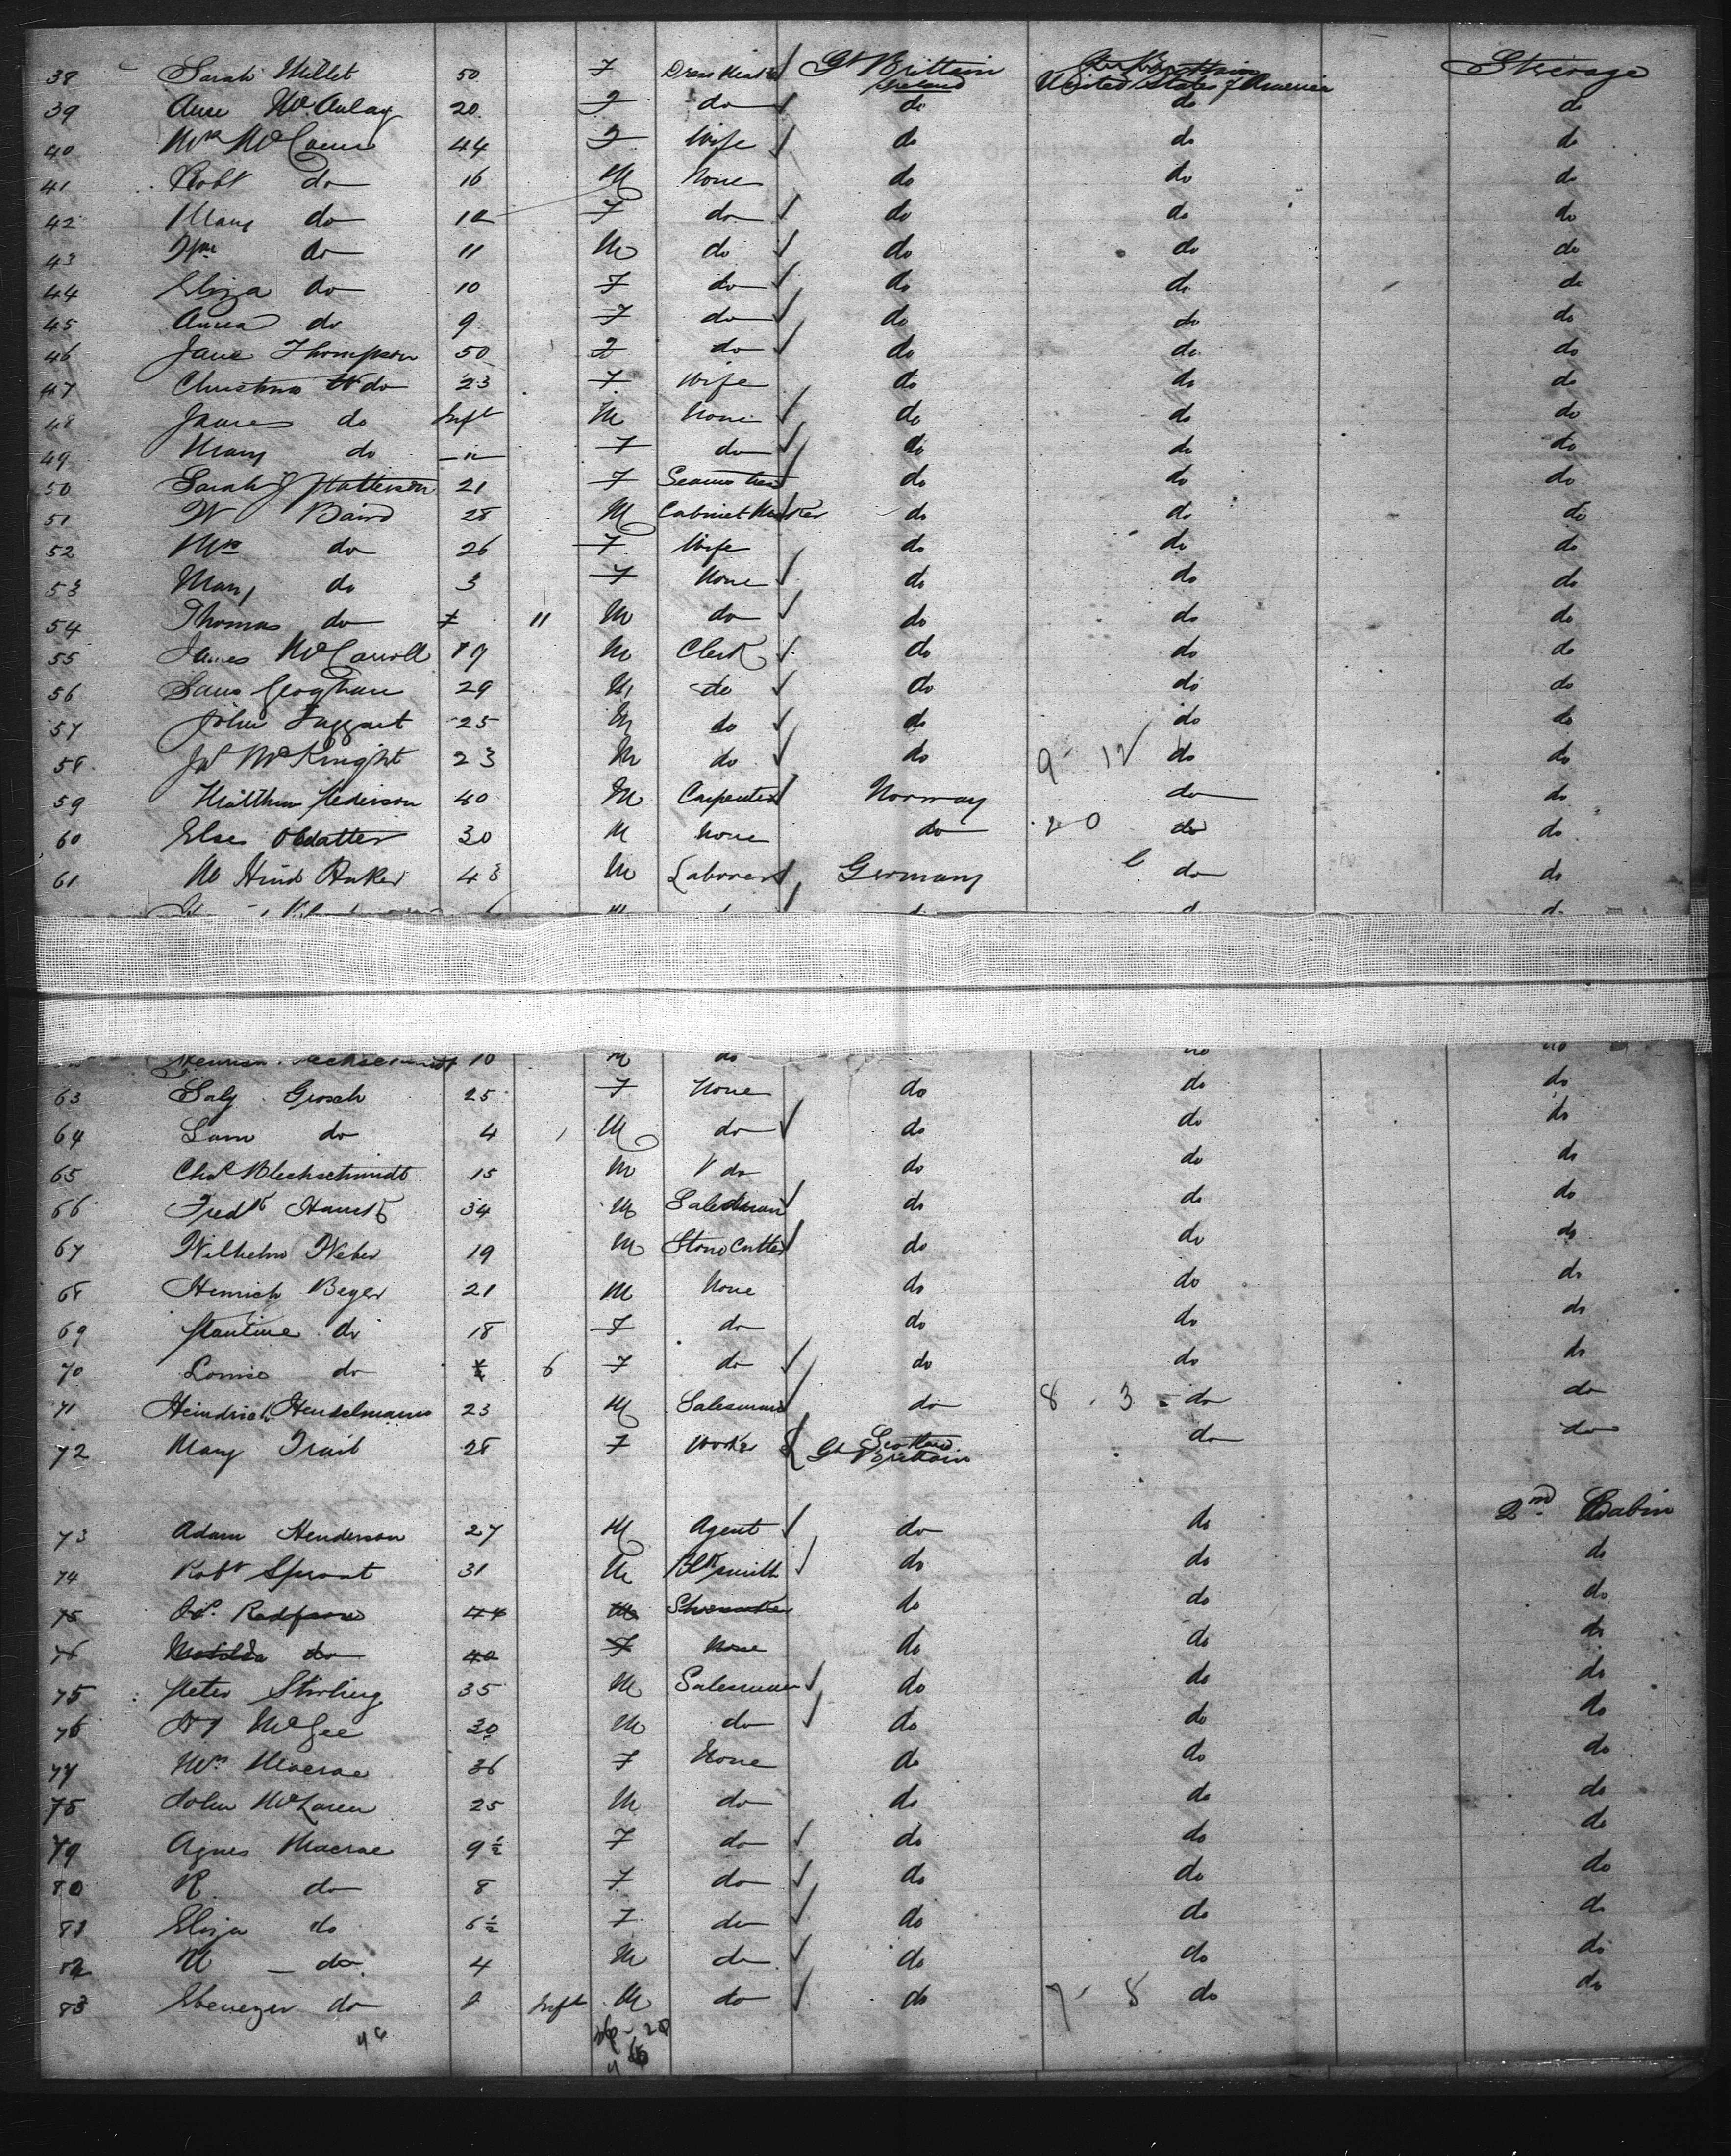 38 Sarah Millet 50 F Dress Maker Gt Brittain Ireland United States of America Steerage
39 Anne McAulay 20 F do do do do
40 Mrs McComm 44 F Wife do do do
41 Robt do 16 M None do do do
42 Mary do 12 F do do do do
43 Wm do 11 M do do do do
44 Eliza do 10 F do do do do
45 Anna do 9 F do do do do
46 Jane Thompson 50 F do do do do
47 Christina do 23 F Wife do do do
48 James do Inft M None do do do
49 Mary do " F do do do do
50 Sarah J Patterson 21 F Seamstress do do do
51 W Baird 28 M Cabinet Maker do do do
52 Mrs do 26 F Wife do do do
53 Mary do 3 F None do do do
54 Thomas do 11 M do do do do
55 James McCarroll 19 M Clerk do do do
56 Saml Geoghan 29 M do do do do
57 John Taggart 25 M do do do do
58 Js McKnight 23 M do do 9 12 do do
59 Matthew Pederson 40 M Carpenter Norway do do
60 Else Olsdatter 30 M None do 20 do do
61 43 M Laborer Germany do do
10 M do do do
63 Saly Grosch 25 F None do do do
64 Sam do 4 M do do do do
65 Chs Blechschmidt 15 M do do do do
66 Fredk Hauck 34 M Salesman do do do
67 Wilhelm Weber 19 M Stone Cutter do do do
68 Heinrich Beyer 21 M None do do do
69 Pauline do 18 F do do do do
70 Louise do 6 F do do do do
71 Heindrich Hendelmann 23 M Salesman do 8 3 do do
72 Mary Trail 28 F Worker Scotland Gt Brittain do do
2nd Cabin
73 Adam Henderson 27 M Agent do do
74 Robt Sproat 31 M Blksmith do do do
75 Js. Radfarn 44 M Shoemaker do do do
76 Matilda do 40 F None do do do
75 Peter Stirling 35 M Salesman do do do
76 McGee 30 M do do do do
77 Mrs Macrae 36 F None do do do
78 John McLaren 25 M do do do do
79 Agnes Macrae 9½ F do do do do
80 R do 8 F do do do do
81 Eliza do 6½ F do do do do
82 M do 4 M do do do do
83 Ebenezer do Inft M do do 7 8 do do